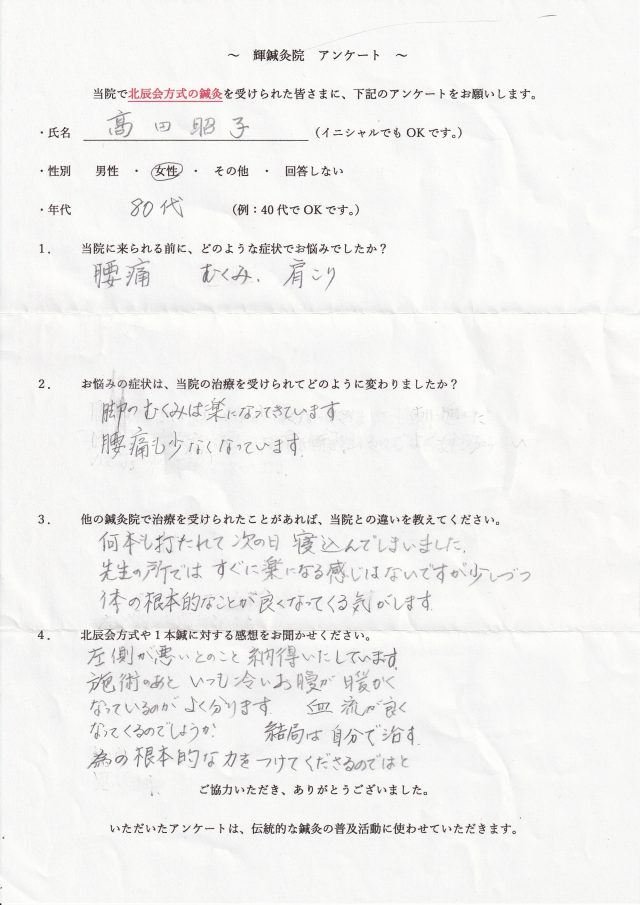 ～ 輝鍼灸院 アンケート ～
当院で北辰会方式の鍼灸を受けられた皆さまに、下記のアンケートをお願いします。
・氏名 高田昭子 （イニシャルでもOKです。）
・性別 男性 ・ 女性 ・ その他 ・ 回答しない
・年代 80代 （例：40代でOKです。）
1. 当院に来られる前に、どのような症状でお悩みでしたか？
腰痛 むくみ、肩こり
2. お悩みの症状は、当院の治療を受けられてどのように変わりましたか？
脚のむくみは楽になってきています
腰痛も少なくなっています。
3. 他の鍼灸院で治療を受けられたことがあれば、当院との違いを教えてください。
何本も打たれて次の日 寝込んでしまいました。
先生の所では すぐに楽になる感じはないですが少しづつ
体の根本的なことが良くなってくる気がします。
4. 北辰会方式や１本鍼に対する感想をお聞かせください。
左側が悪いとのこと 納得いたしています。
施術のあと いつも冷いお腹が 暖かく
なっているのが よく分ります。 血流が良く
なってくるのでしょうか。 結局は自分で治す。
為の根本的な力をつけてくださるのではと
ご協力いただき、ありがとうございました。
いただいたアンケートは、伝統的な鍼灸の普及活動に使わせていただきます。